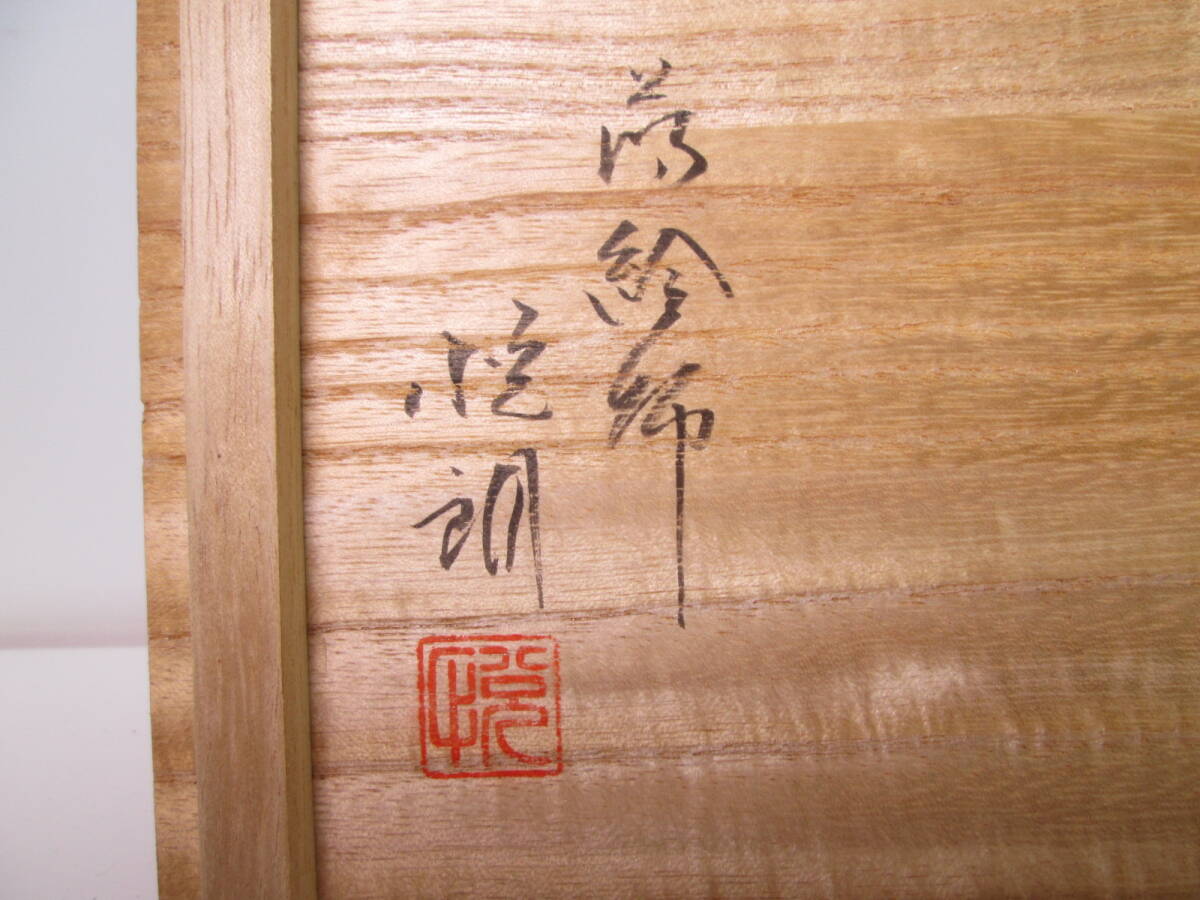 蒔絵師
悦朗
悦